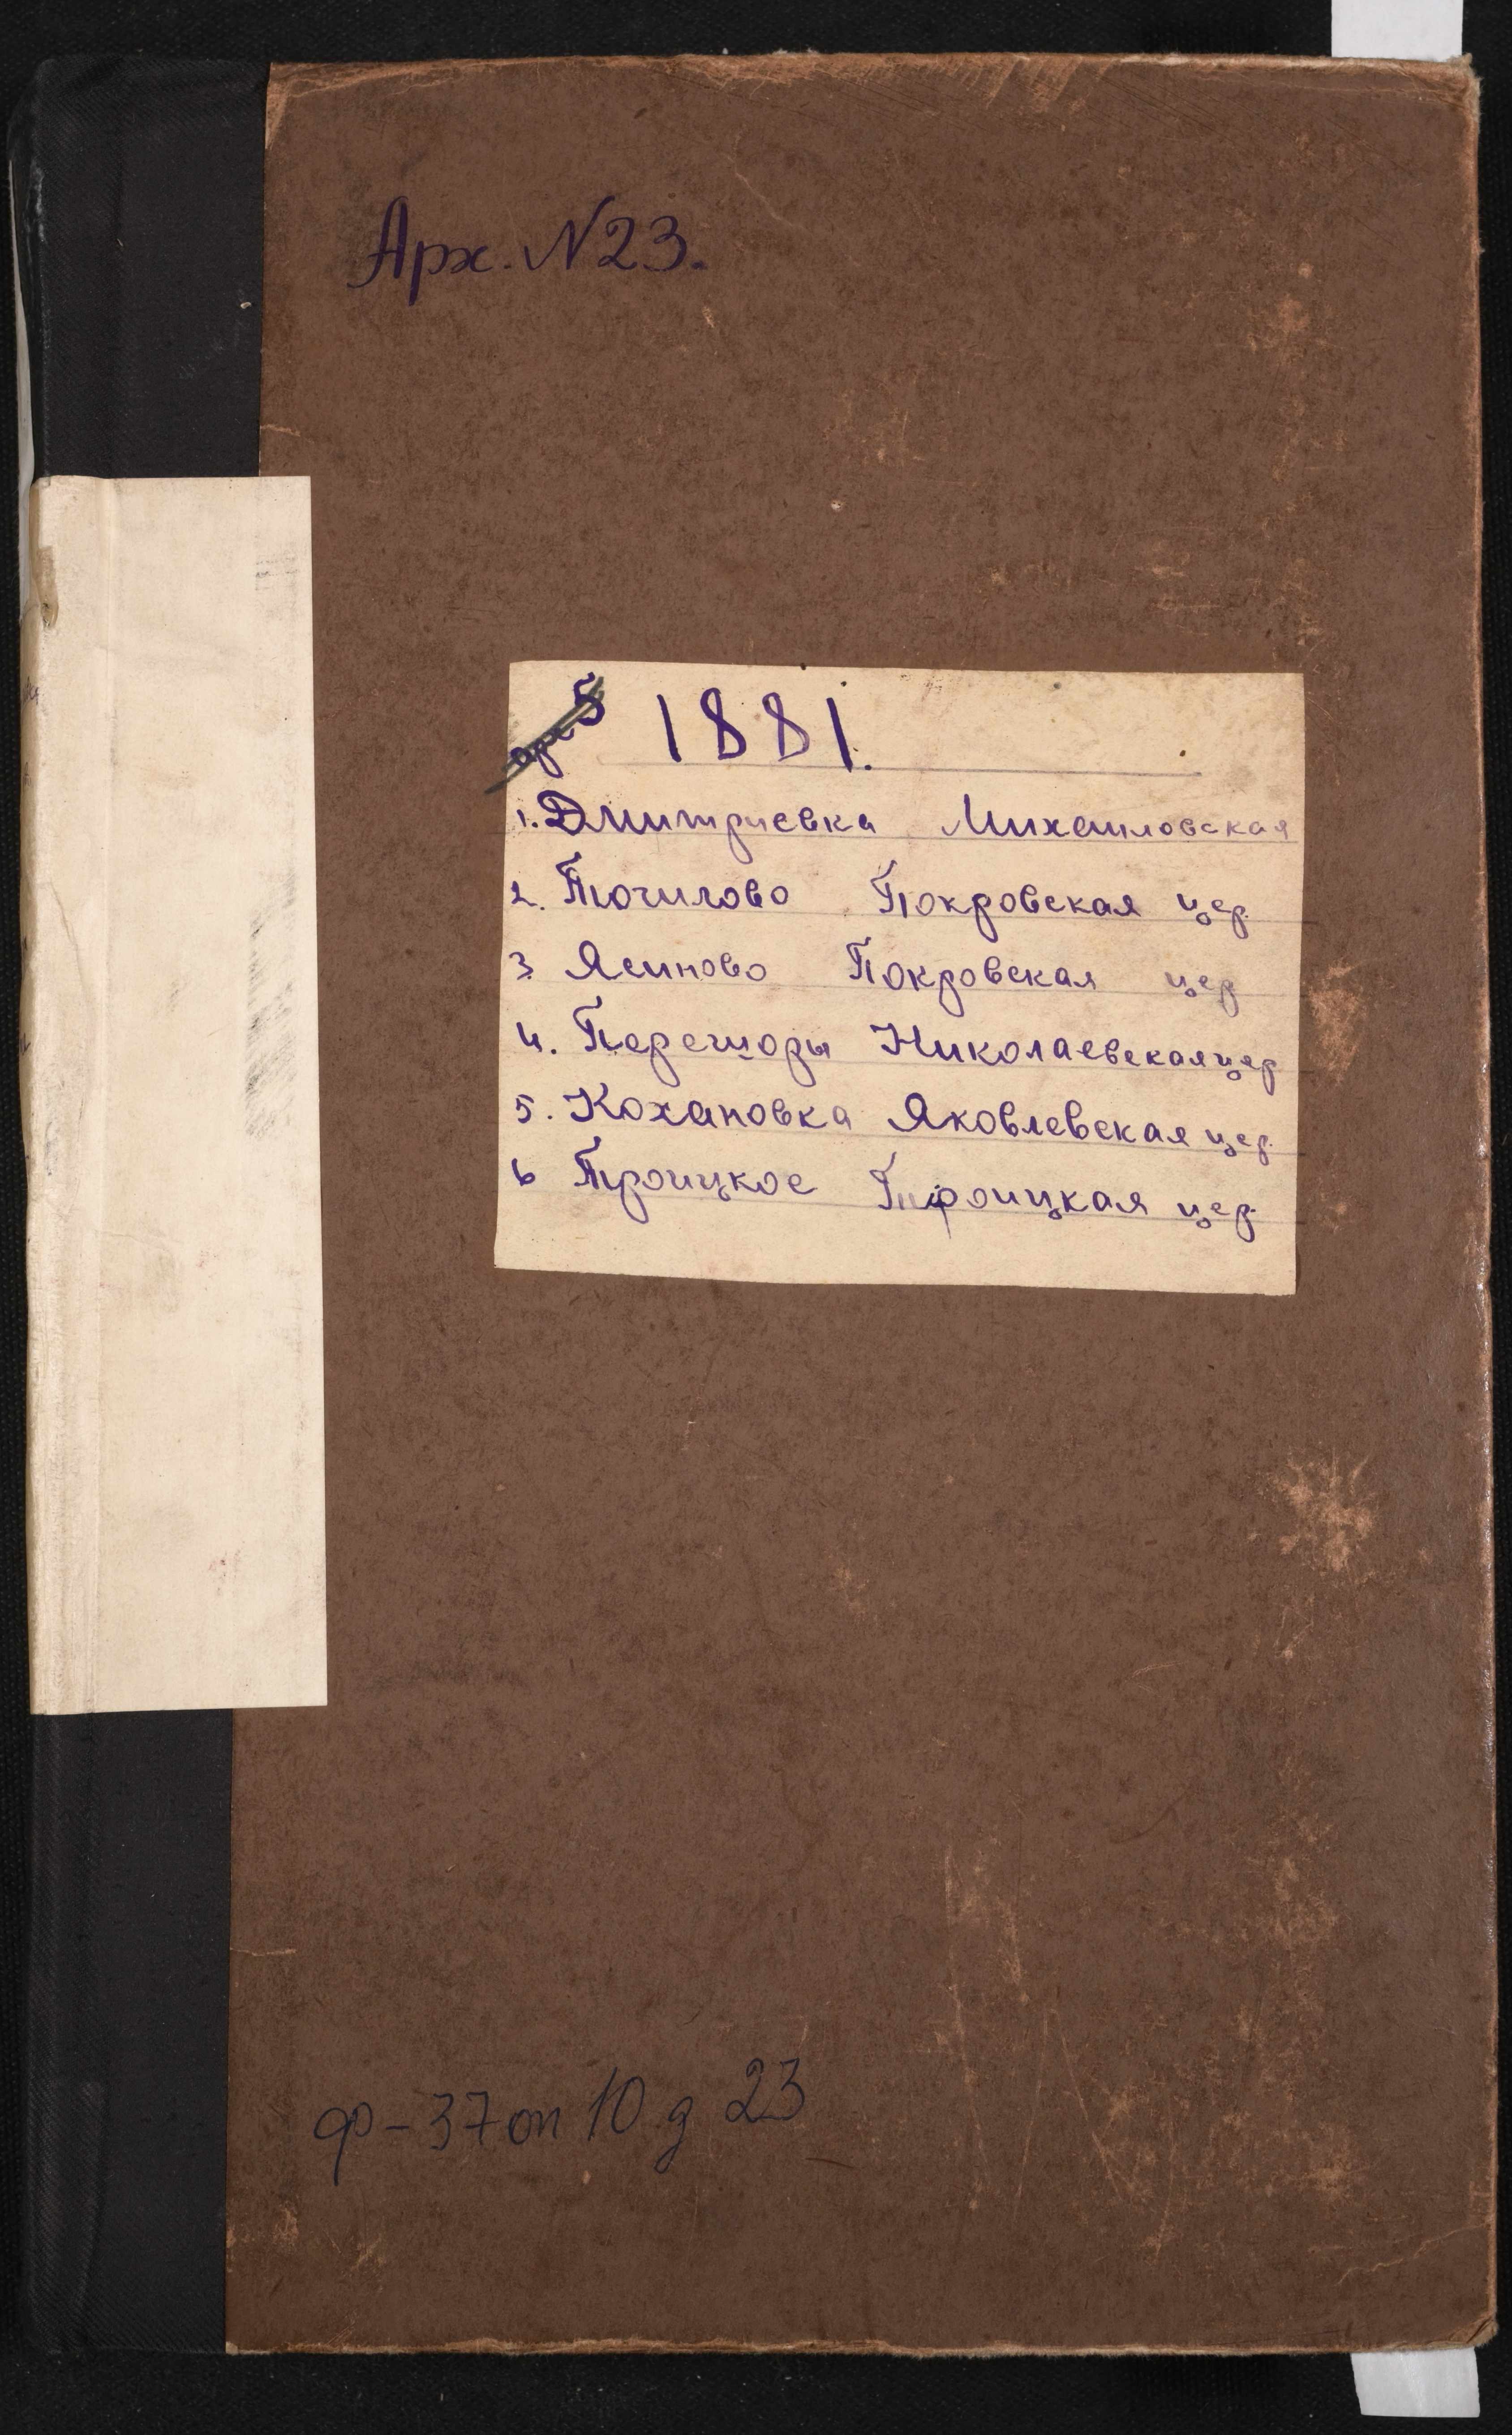 Арх. N23.
1881.
1. Дмитриевка Михаиловская
2. Точилово Покровская цер.
3 Ясиново Покровская цер
4. Перешоры Николаевская цер
5. Кохановка Яковлевская цер.
6 Троицкое Троицкая цер.
ф-37 оп 10 д 23